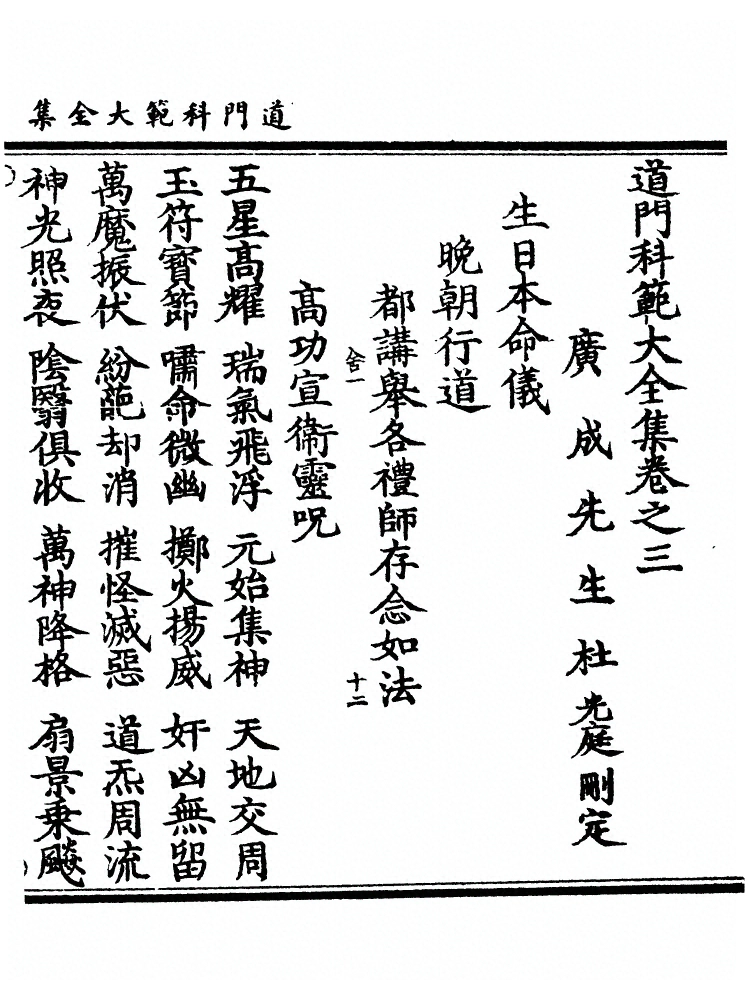 道門科範大全集
道門科範大全集卷之三
廣成先生杜光庭刪定
生日本命儀
晚朝行道
都講舉各禮師存念如法
舍一
十二
高功宣衛靈呪
五星高耀 瑞氣飛浮 元始集神 天地交周
玉符寶節 嘯命微幽 擲火揚威 奸凶無留
萬魔振伏 紛葩却消 摧怪滅惡 道炁周流
神光照夜 陰翳俱收 萬神降格 扇景乘飈